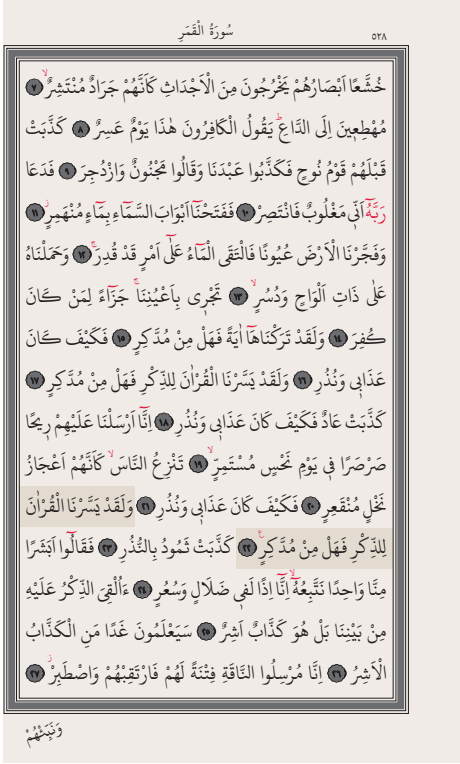 سُورَةُ الْقَمَرِ
٥٢٨
خُشَّعًا اَبْصَارُهُمْ يَخْرُجُونَ مِنَ الْاَجْدَاثِ كَاَنَّهُمْ جَرَادٌ مُنْتَشِرٌۙ ﴿٧﴾
مُهْطِعٖينَ اِلَى الدَّاعِؕ يَقُولُ الْكَافِرُونَ هٰذَا يَوْمٌ عَسِرٌ ﴿٨﴾ كَذَّبَتْ
قَبْلَهُمْ قَوْمُ نُوحٍ فَكَذَّبُوا عَبْدَنَا وَقَالُوا مَجْنُونٌ وَازْدُجِرَ ﴿٩﴾ فَدَعَا
رَبَّهُٓ اَنّٖي مَغْلُوبٌ فَانْتَصِرْ ﴿١٠﴾ فَفَتَحْنَٓا اَبْوَابَ السَّمَٓاءِ بِمَٓاءٍ مُنْهَمِرٍؗ ﴿١١﴾
وَفَجَّرْنَا الْاَرْضَ عُيُونًا فَالْتَقَى الْمَٓاءُ عَلٰٓى اَمْرٍ قَدْ قُدِرَۚ ﴿١٢﴾ وَحَمَلْنَاهُ
عَلٰى ذَاتِ اَلْوَاحٍ وَدُسُرٍۙ ﴿١٣﴾ تَجْرٖي بِاَعْيُنِنَاۚ جَزَٓاءً لِمَنْ كَانَ
كُفِرَ ﴿١٤﴾ وَلَقَدْ تَرَكْنَاهَٓا اٰيَةً فَهَلْ مِنْ مُدَّكِرٍ ﴿١٥﴾ فَكَيْفَ كَانَ
عَذَابٖي وَنُذُرِ ﴿١٦﴾ وَلَقَدْ يَسَّرْنَا الْقُرْاٰنَ لِلذِّكْرِ فَهَلْ مِنْ مُدَّكِرٍ ﴿١٧﴾
كَذَّبَتْ عَادٌ فَكَيْفَ كَانَ عَذَابٖي وَنُذُرِ ﴿١٨﴾ اِنَّٓا اَرْسَلْنَا عَلَيْهِمْ رٖيحًا
صَرْصَرًا فٖي يَوْمِ نَحْسٍ مُسْتَمِرٍّۙ ﴿١٩﴾ تَنْزِعُ النَّاسَۙ كَاَنَّهُمْ اَعْجَازُ
نَخْلٍ مُنْقَعِرٍ ﴿٢٠﴾ فَكَيْفَ كَانَ عَذَابٖي وَنُذُرِ ﴿٢١﴾ وَلَقَدْ يَسَّرْنَا الْقُرْاٰنَ
لِلذِّكْرِ فَهَلْ مِنْ مُدَّكِرٍ۟ ﴿٢٢﴾ كَذَّبَتْ ثَمُودُ بِالنُّذُرِ ﴿٢٣﴾ فَقَالُٓوا اَبَشَرًا
مِنَّا وَاحِدًا نَتَّبِعُهُٓۙ اِنَّٓا اِذًا لَفٖي ضَلَالٍ وَسُعُرٍ ﴿٢٤﴾ ءَاُلْقِيَ الذِّكْرُ عَلَيْهِ
مِنْ بَيْنِنَا بَلْ هُوَ كَذَّابٌ اَشِرٌ ﴿٢٥﴾ سَيَعْلَمُونَ غَدًا مَنِ الْكَذَّابُ
الْاَشِرُ ﴿٢٦﴾ اِنَّا مُرْسِلُوا النَّاقَةِ فِتْنَةً لَهُمْ فَارْتَقِبْهُمْ وَاصْطَبِرْؗ ﴿٢٧﴾
وَنَبِّئْهُمْ